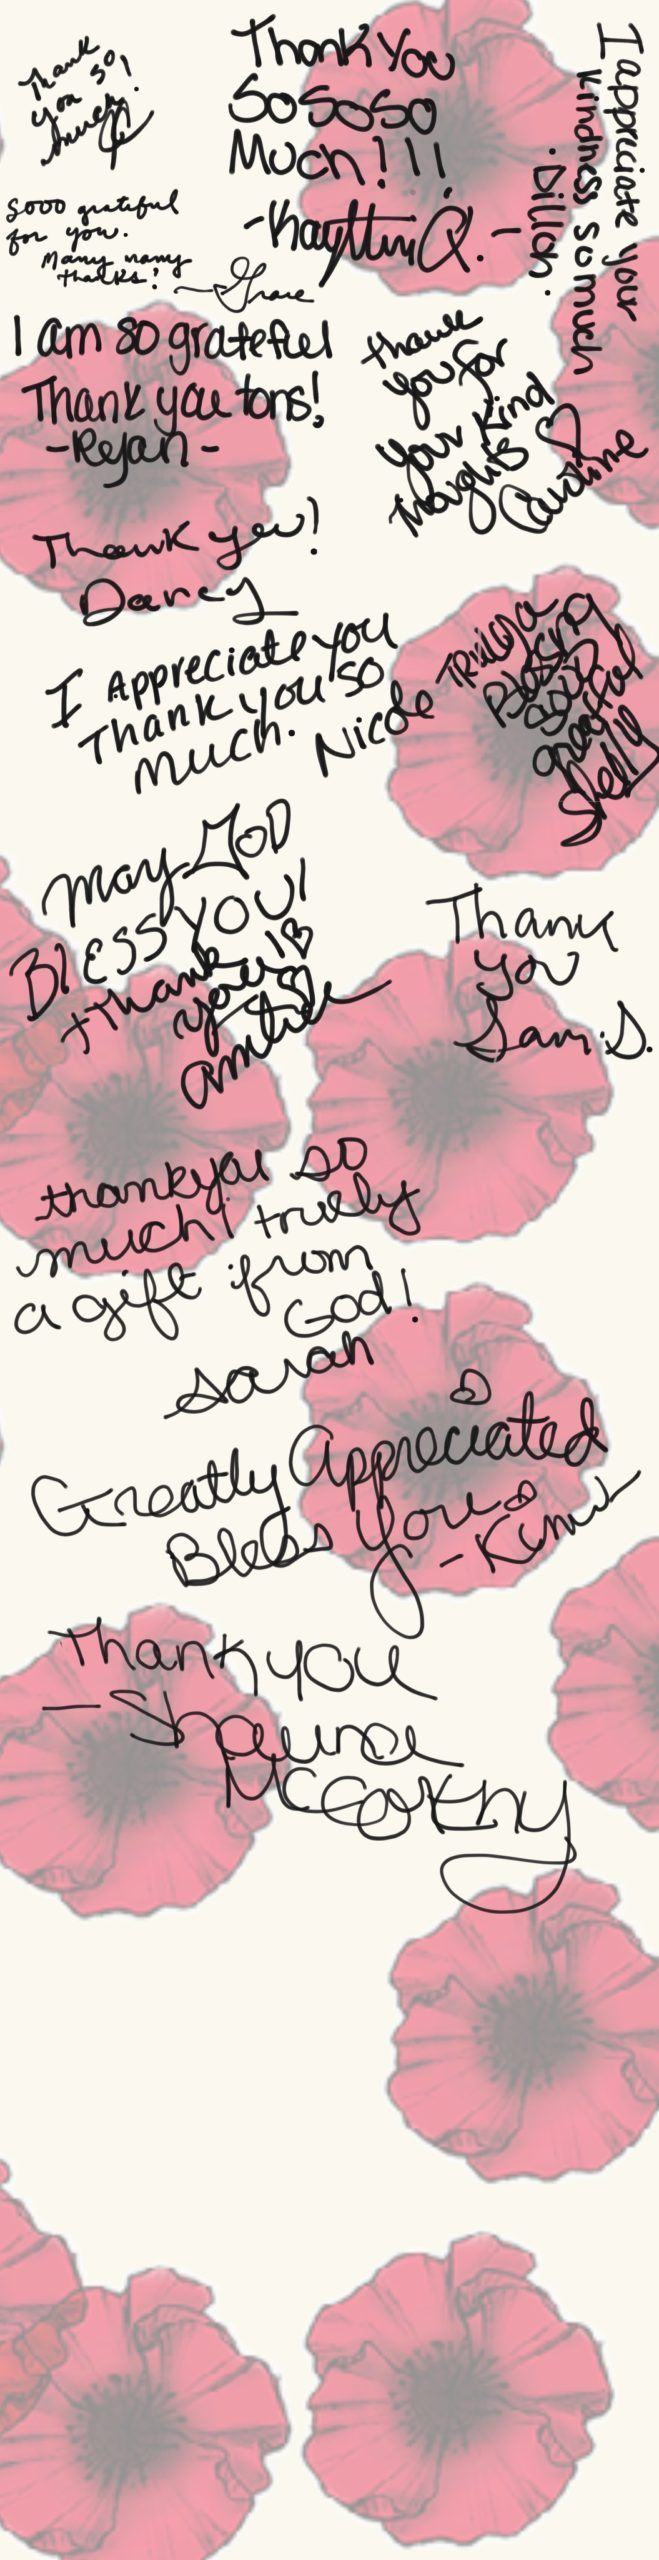 Thank
you so
much!
Thank You
So So So
Much!!!
-Kaytlin Q.-
I appreciate your
kindness so much
·Dillon·
Sooo grateful
for you.
Many many
thanks!
—Grace
I am so grateful
Thank you tons!
-Ryan-
thank
you for
your kind
thoughts
Caroline
Thank you!
Darcy
I Appreciate you
Thank you so
much.
Nicole
Truly a
Blessing
grateful
Shelly
May GOD
BLESS YOU!
thank
you!
Thank
you
Sam.S.
thankyou so
much! truly
a gift from
God!
Sarah
Greatly Appreciated
Bless you
Thank you
—Shauna
McCarthy